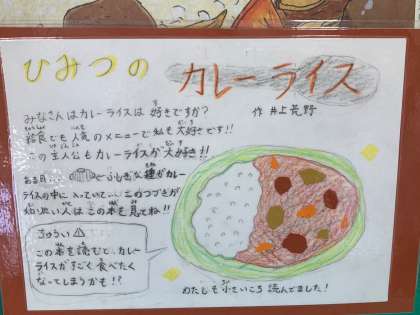 ひみつの
カレーライス
作 井上荒野
みなさんはカレーライスは好きですか?
給食でも人気のメニューで私も大好きです!!
この主人公もカレーライスが大好き!!
ある日…ふしぎな種がカレー
ライスの中に入っていて…このつづきが
知りたい人はこの本を見てね!!
ちゅうい⚠
この本を読むと、カレー
ライスがすごく食べたく
なってしまうかも!?
わたしも小さいころ読んでました!